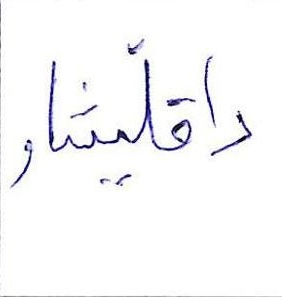 داقڵیشاو